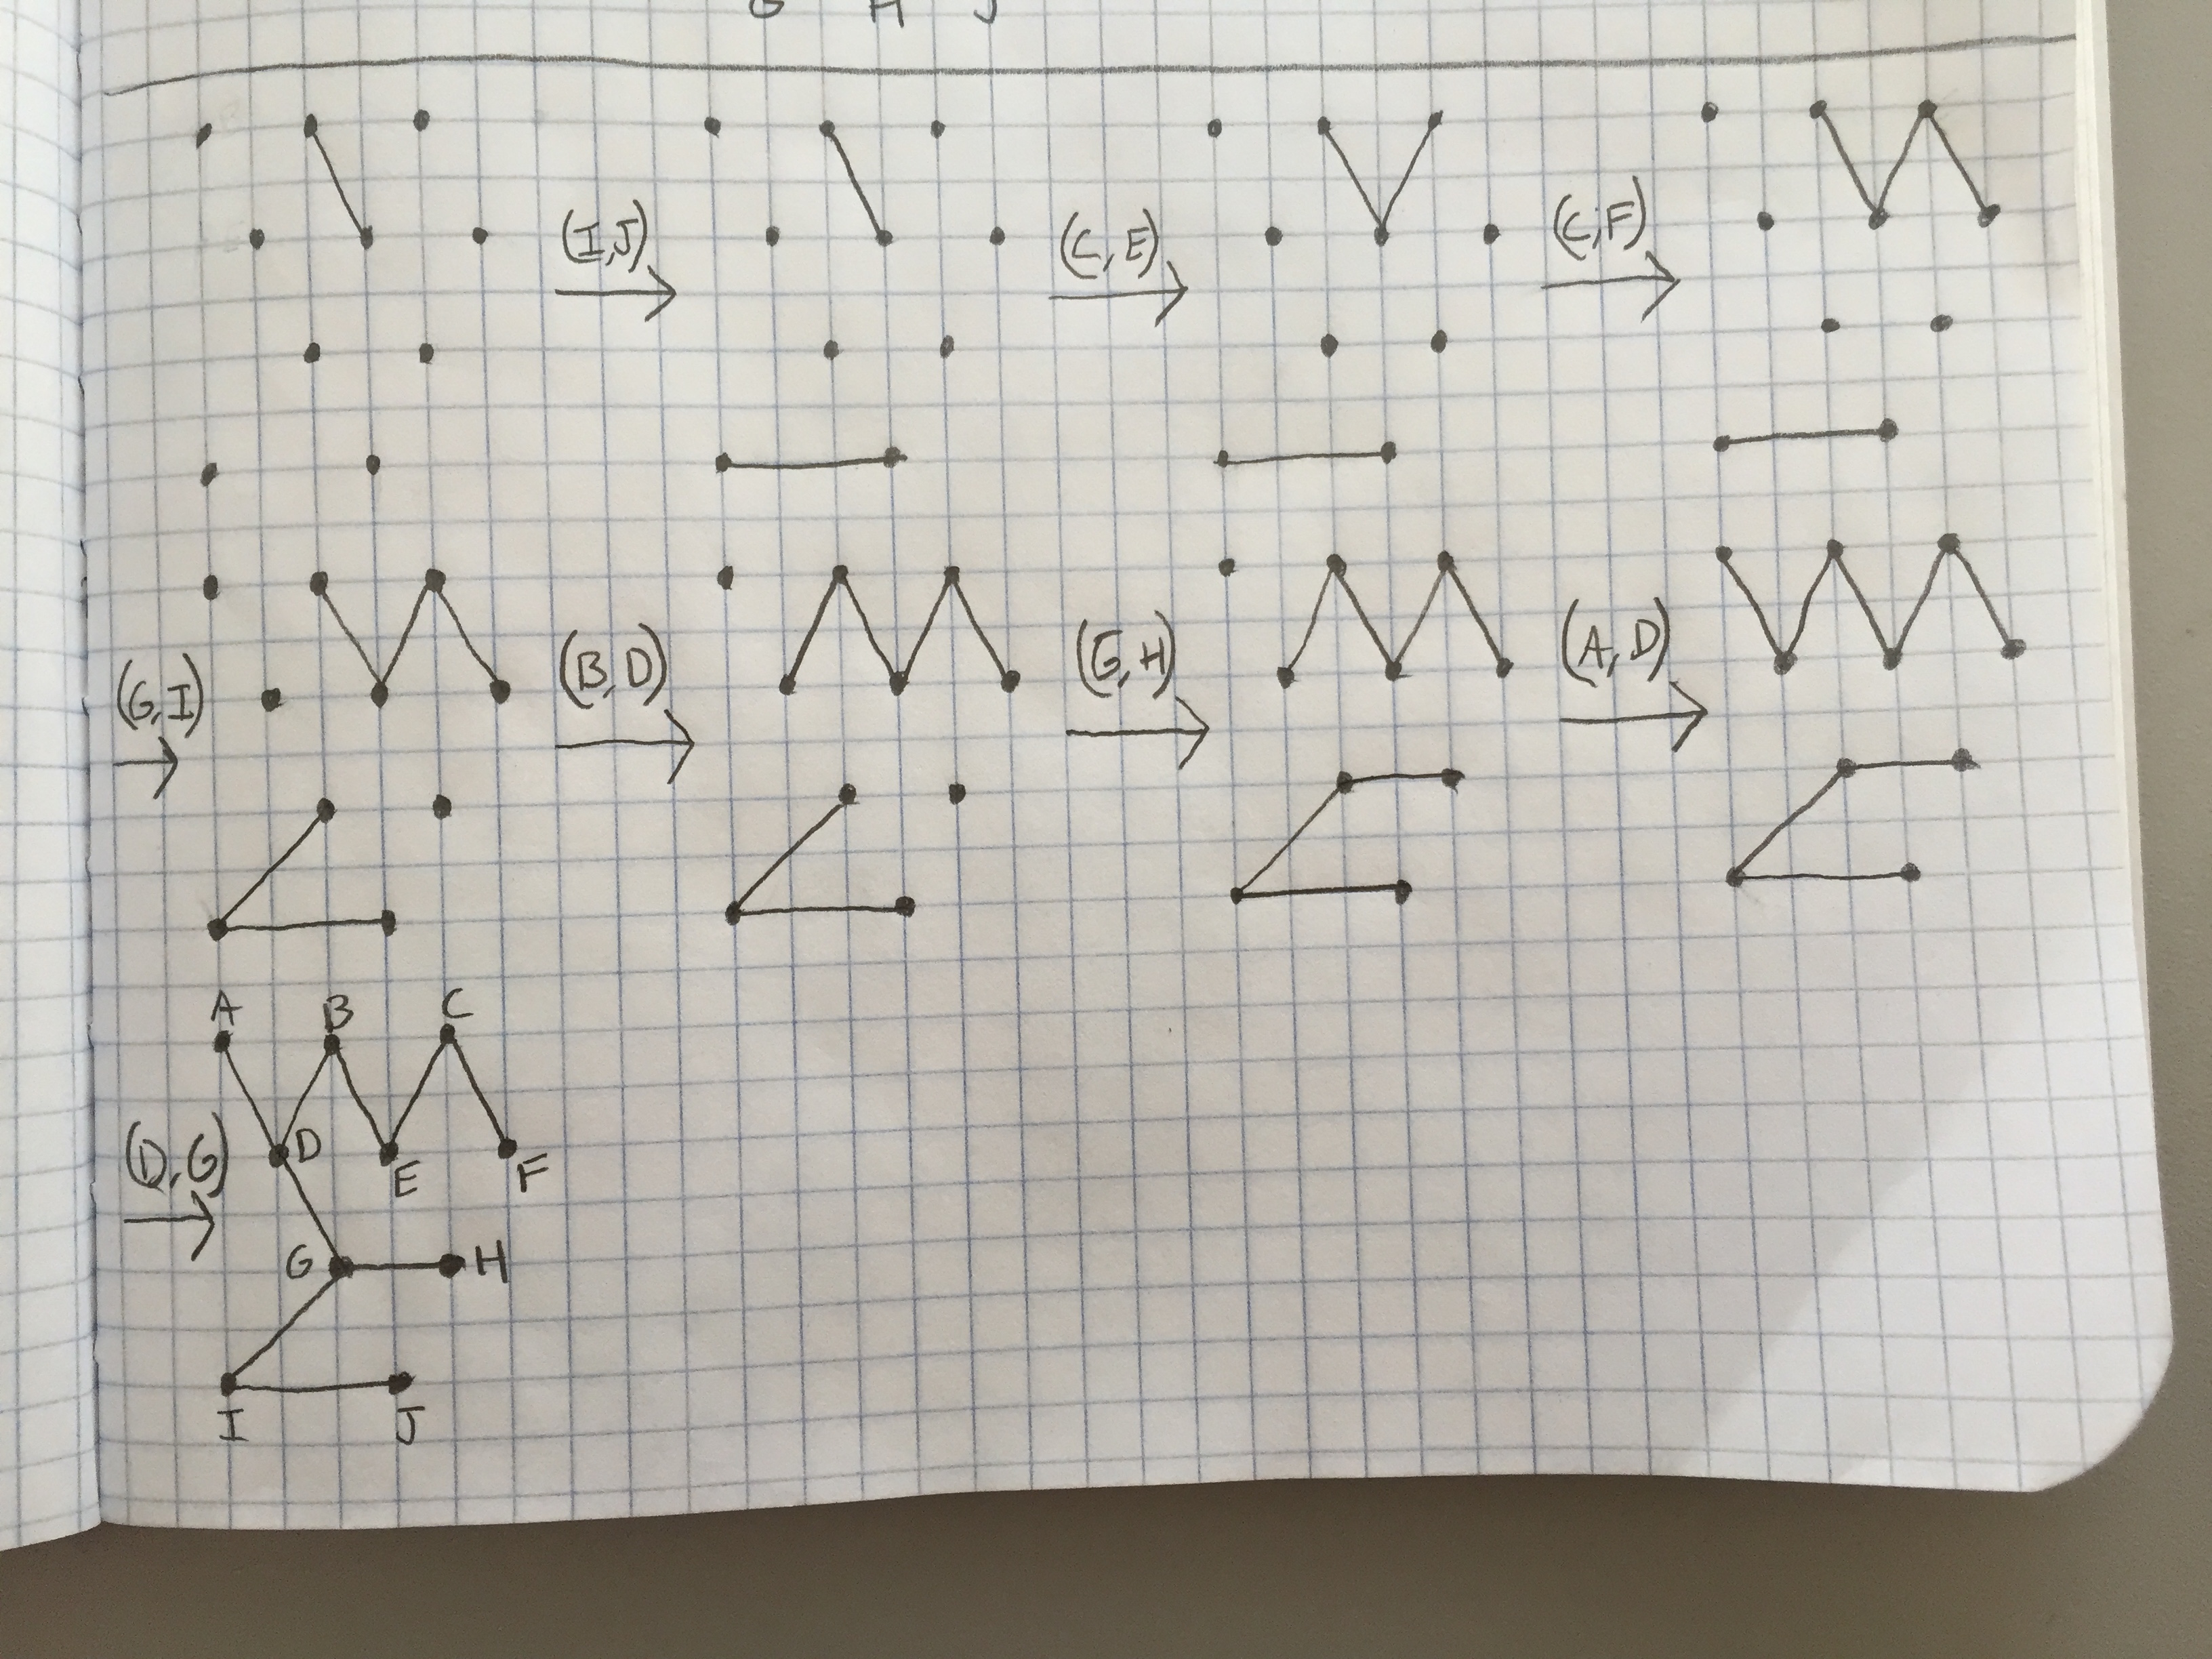 G H J
(I,J) (C,E) (C,F)
(G,I) (B,D) (G,H) (A,D)
A B C
(D,G) D E F
G H
I J